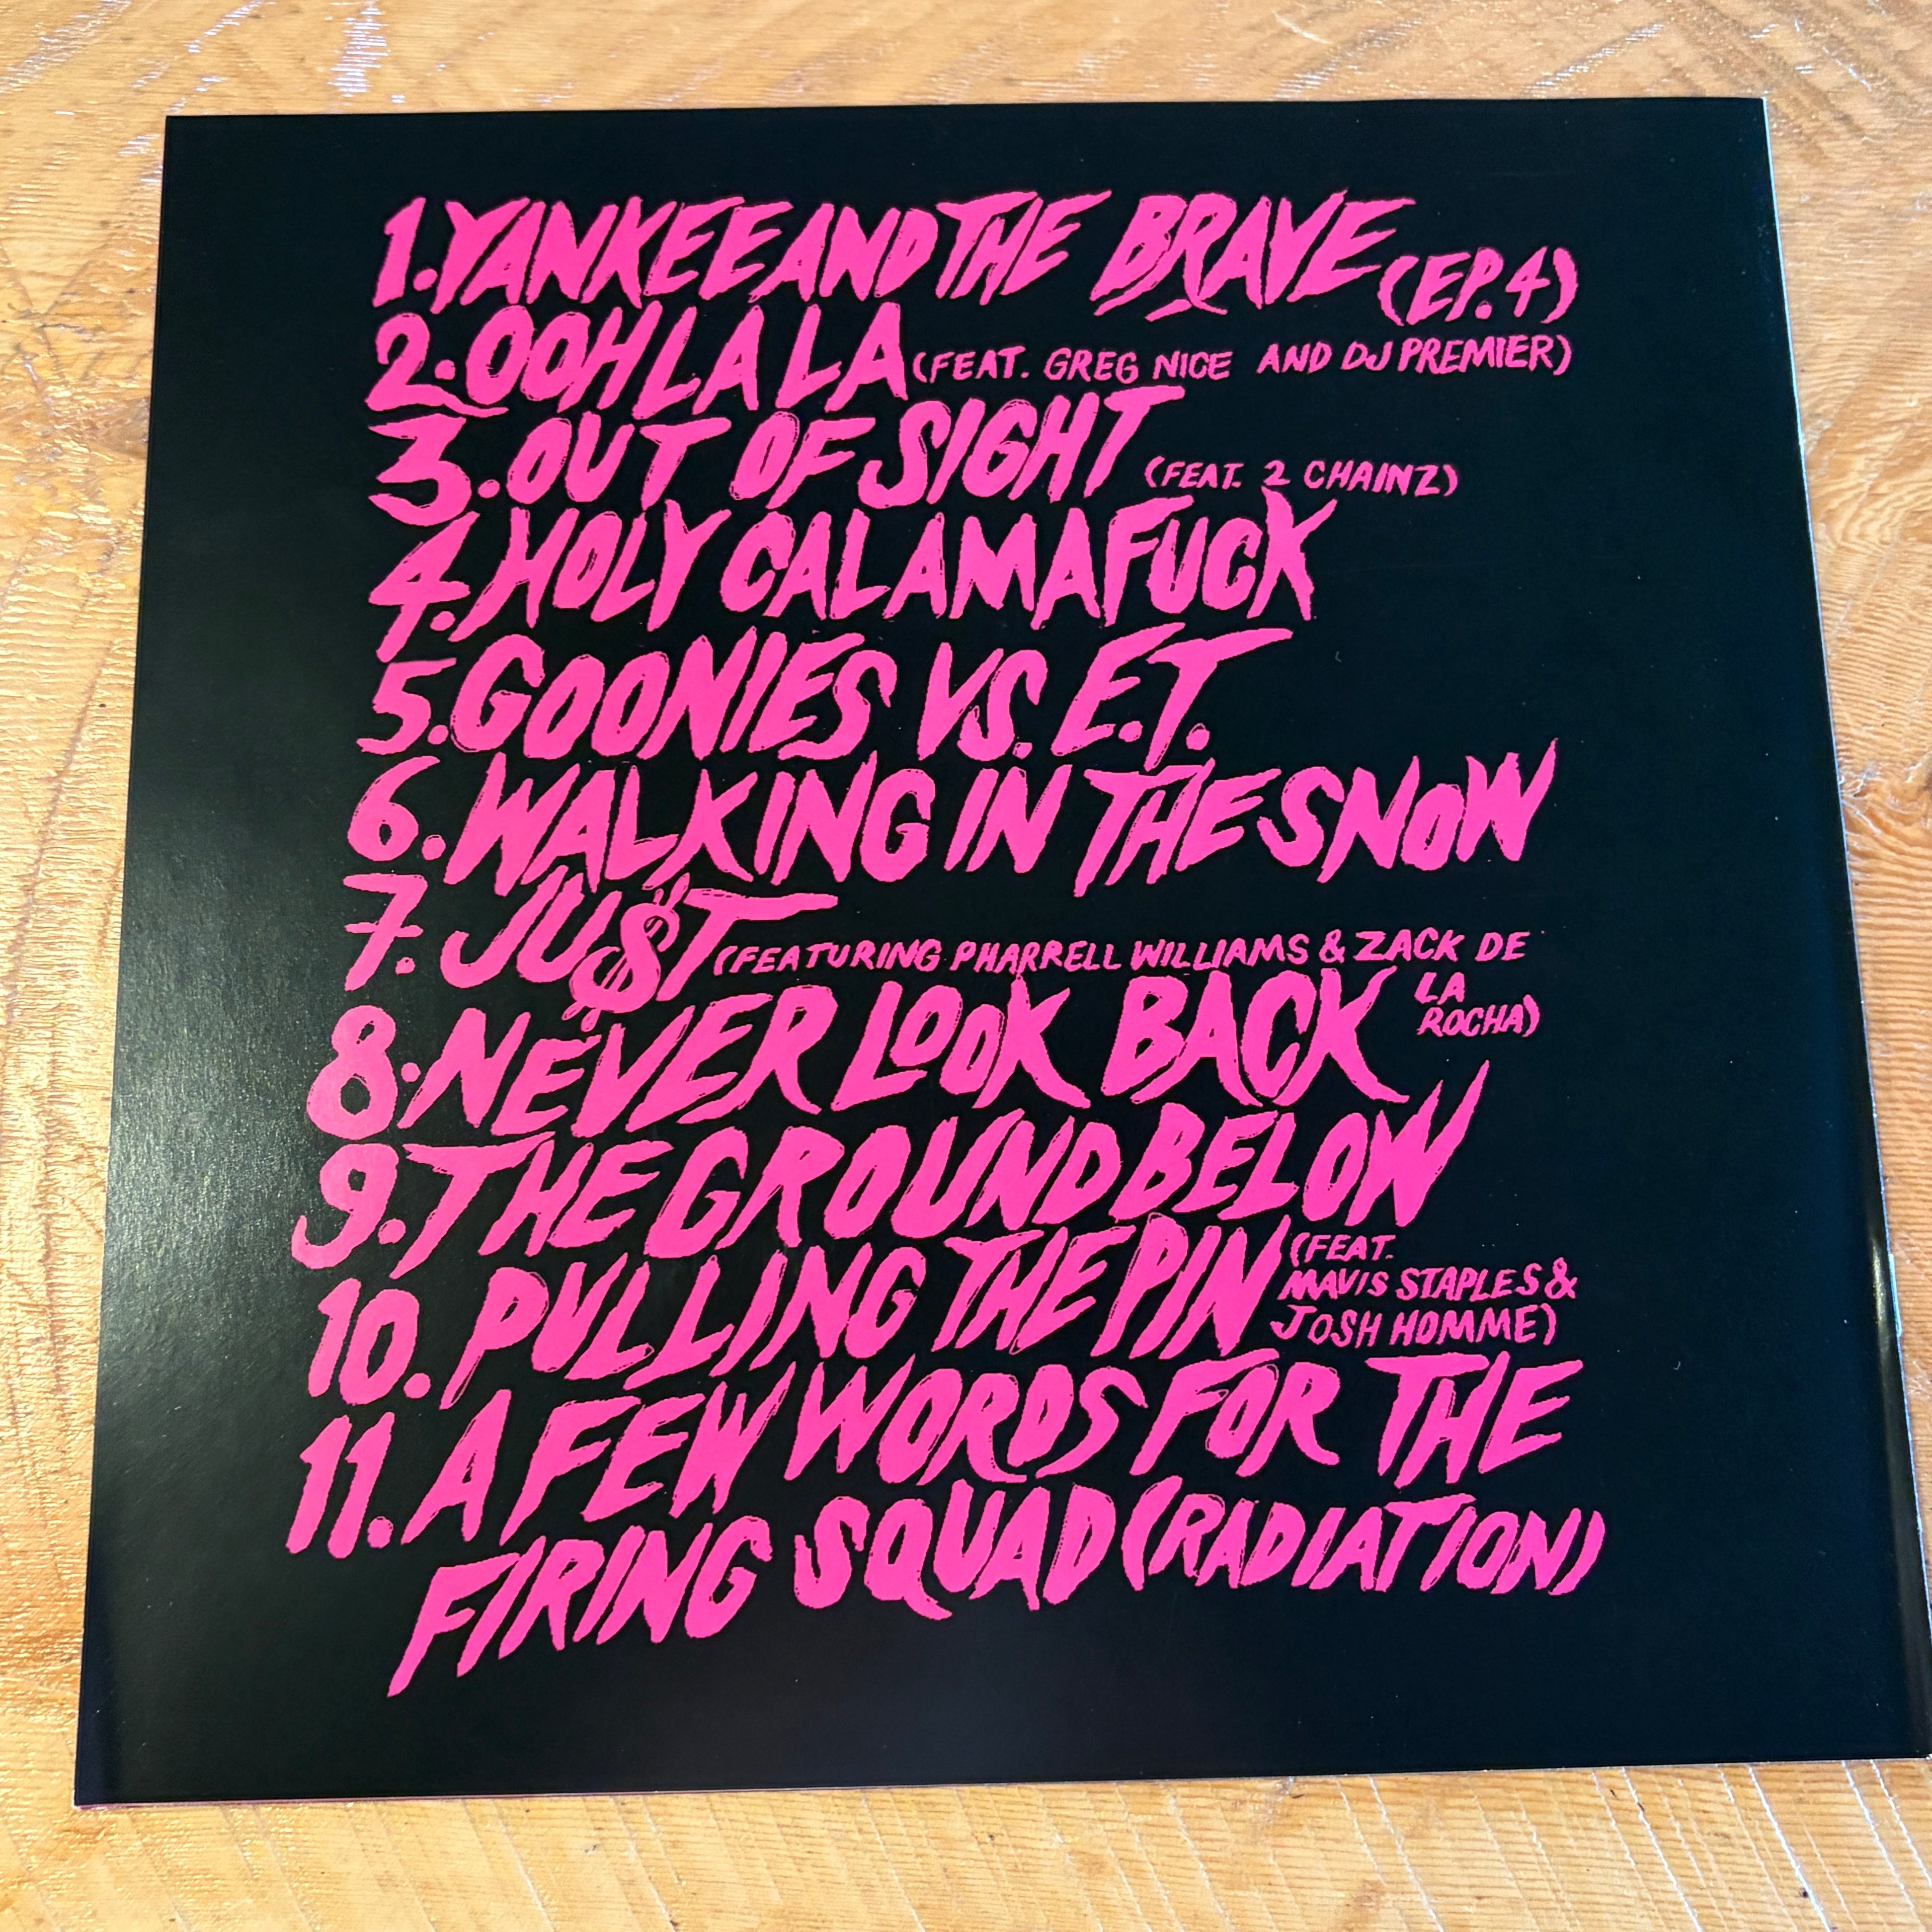 1. YANKEE AND THE BRAVE (EP. 4)
2. OOH LA LA (FEAT. GREG NICE AND DJ PREMIER)
3. OUT OF SIGHT (FEAT. 2 CHAINZ)
4. HOLY CALAMAFUCK
5. GOONIES VS. E.T.
6. WALKING IN THE SNOW
7. JU$T (FEATURING PHARRELL WILLIAMS & ZACK DE
LA
ROCHA)
8. NEVER LOOK BACK
9. THE GROUND BELOW
10. PULLING THE PIN (FEAT.
MAVIS STAPLES &
JOSH HOMME)
11. A FEW WORDS FOR THE
FIRING SQUAD (RADIATION)